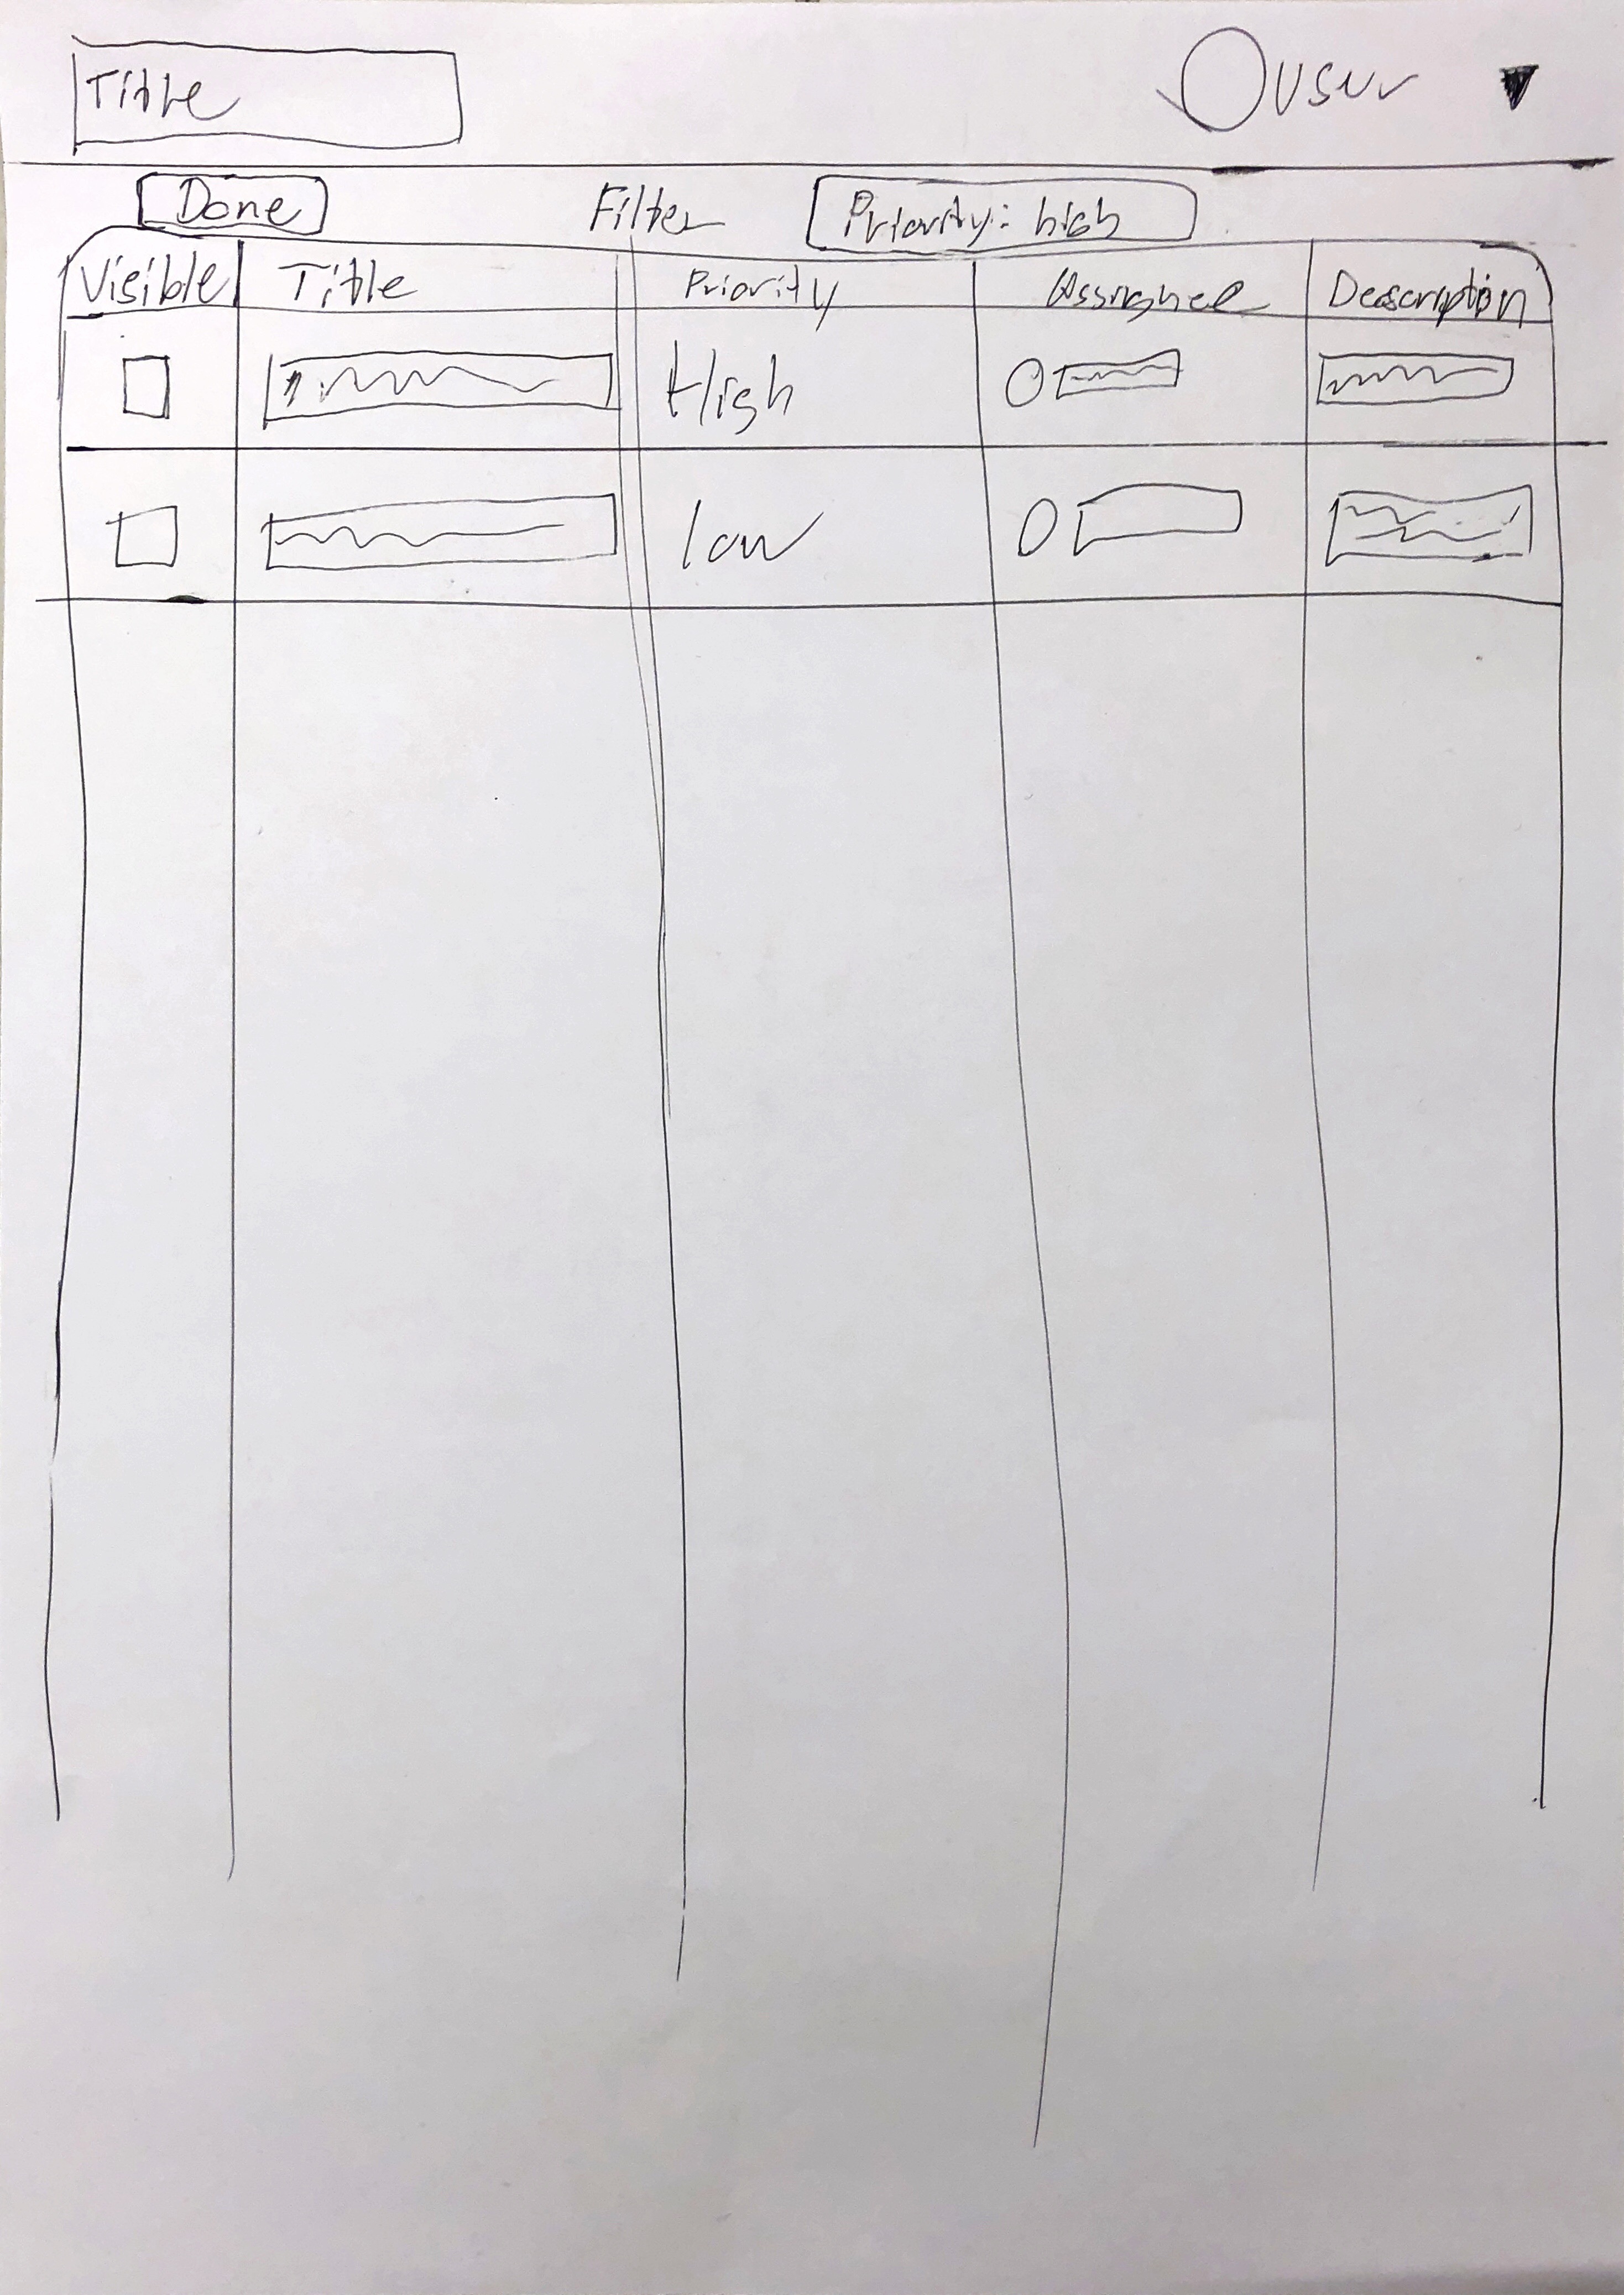 Title User
Done Filter Priority: high
Visible Title Priority Assignee Deascription
High
low